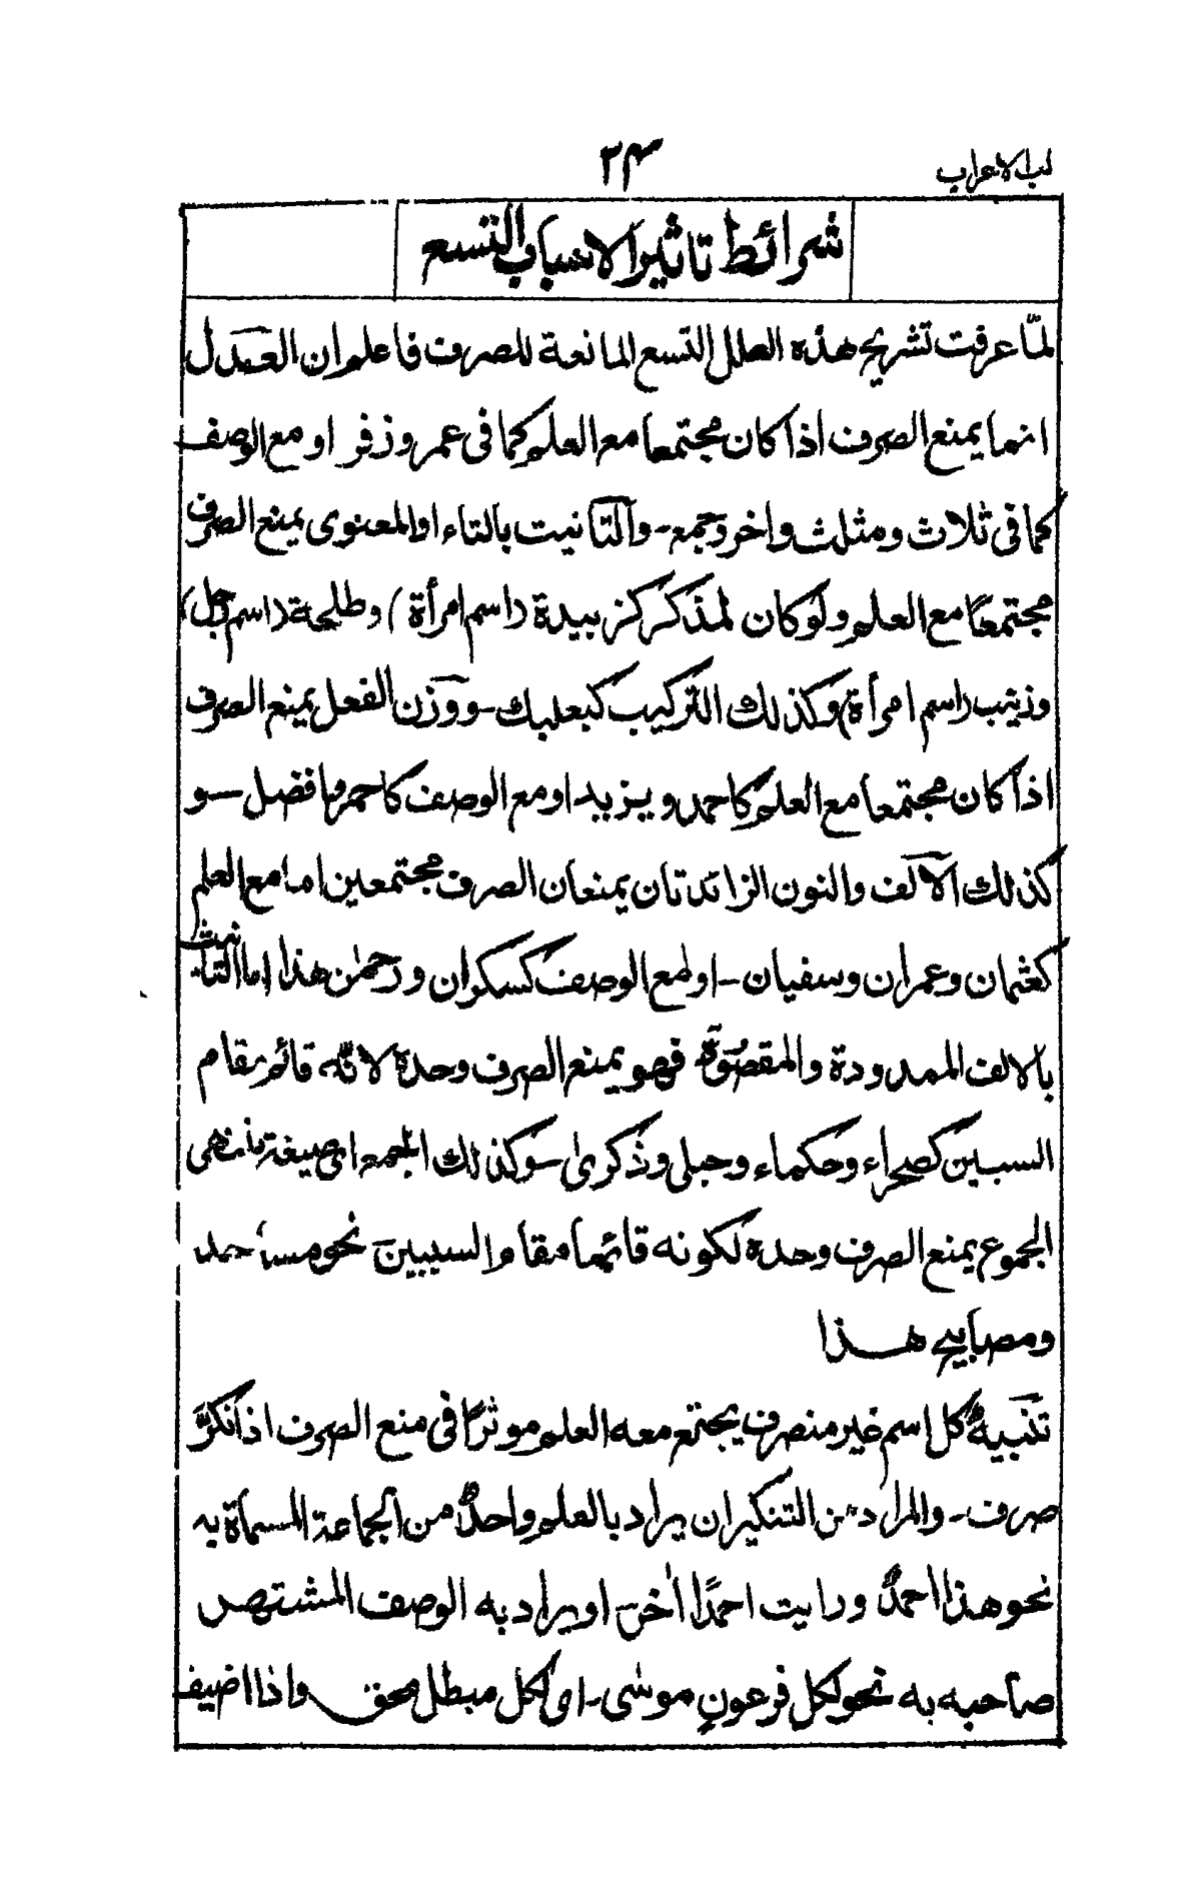 لب الاعراب
٢٤
شرائط تاثير الاسباب التسع
لمّا عرفت تشريح هذه العلل التسع المانعة للصرف فاعلم ان العدل
انما يمنع الصرف اذا كان مجتمعا مع العلم كما فى عمر وزفر او مع الوصف
كما فى ثلاث ومثلث واخر وجمع - والتانيث بالتاء او المعنوى يمنع الصرف
مجتمعًا مع العلم ولو كان لمذكر كزبيدة (اسم امرأة) وطلحة (اسم رجل)
وزينب (اسم امرأة) وكذلك التركيب كبعلبك - ووزن الفعل يمنع الصرف
اذا كان مجتمعا مع العلم كاحمد ويزيد او مع الوصف كاحمر وافضل - و
كذلك الالف والنون الزائدتان يمنعان الصرف مجتمعين اما مع العلم
كعثمان وعمران وسفيان - او مع الوصف كسكران ورحمٰن هذا اما التانيث
بالالف الممدودة والمقصورة فهو يمنع الصرف وحدہ لانّه قائم مقام
السببين كصحراء وحكماء وحبلى وذكرىٰ - وكذلك الجمع اى صيغة منتهى
الجموع يمنع الصرف وحدہ لكونه قائما مقام السببين نحو مساجد
ومصابيح هذا
تنبيهٌ كل اسم غير منصرف يجتمع معه العلم موثرًا فى منع الصرف اذا نكّر
صرف - والمراد من التنكير ان يراد بالعلم واحدٌ من الجماعة المسماة به
نحو هذا احمدٌ ورايت احمدًا اٰخر او يراد به الوصف المشتهر
صاحبه به نحو لكل فرعونٍ موسٰى - اى لكل مبطل محق واذا اضيف